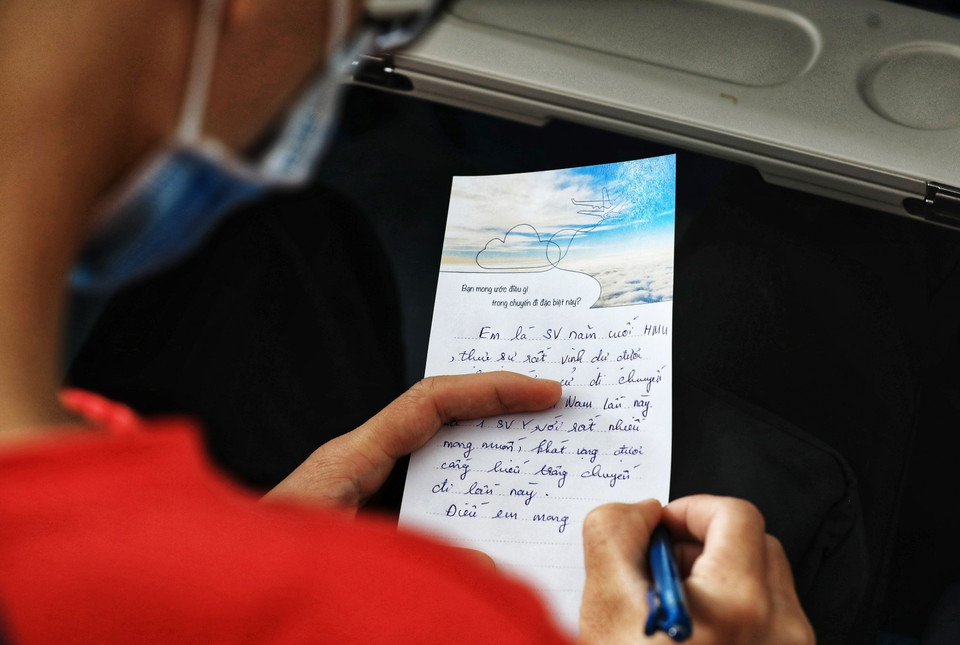 Bạn mong ước điều gì
trong chuyến đi đặc biệt này?
Em là SV năm cuối HMU
, thực sự rất vinh dự được
cử đi chuyến
Nam lần này.
1 SV Y, với rất nhiều
mong muốn, khát vọng được
cống hiến trong chuyến
đi lần này.
Điều em mong